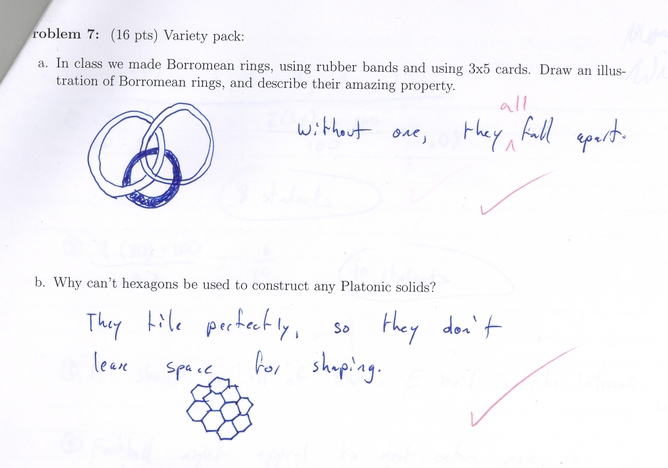 roblem 7: (16 pts) Variety pack:
a. In class we made Borromean rings, using rubber bands and using 3x5 cards. Draw an illus-
tration of Borromean rings, and describe their amazing property.
all
Without one, they ^ fall apart.
b. Why can't hexagons be used to construct any Platonic solids?
They tile perfectly, so they don't
leave space for shaping.